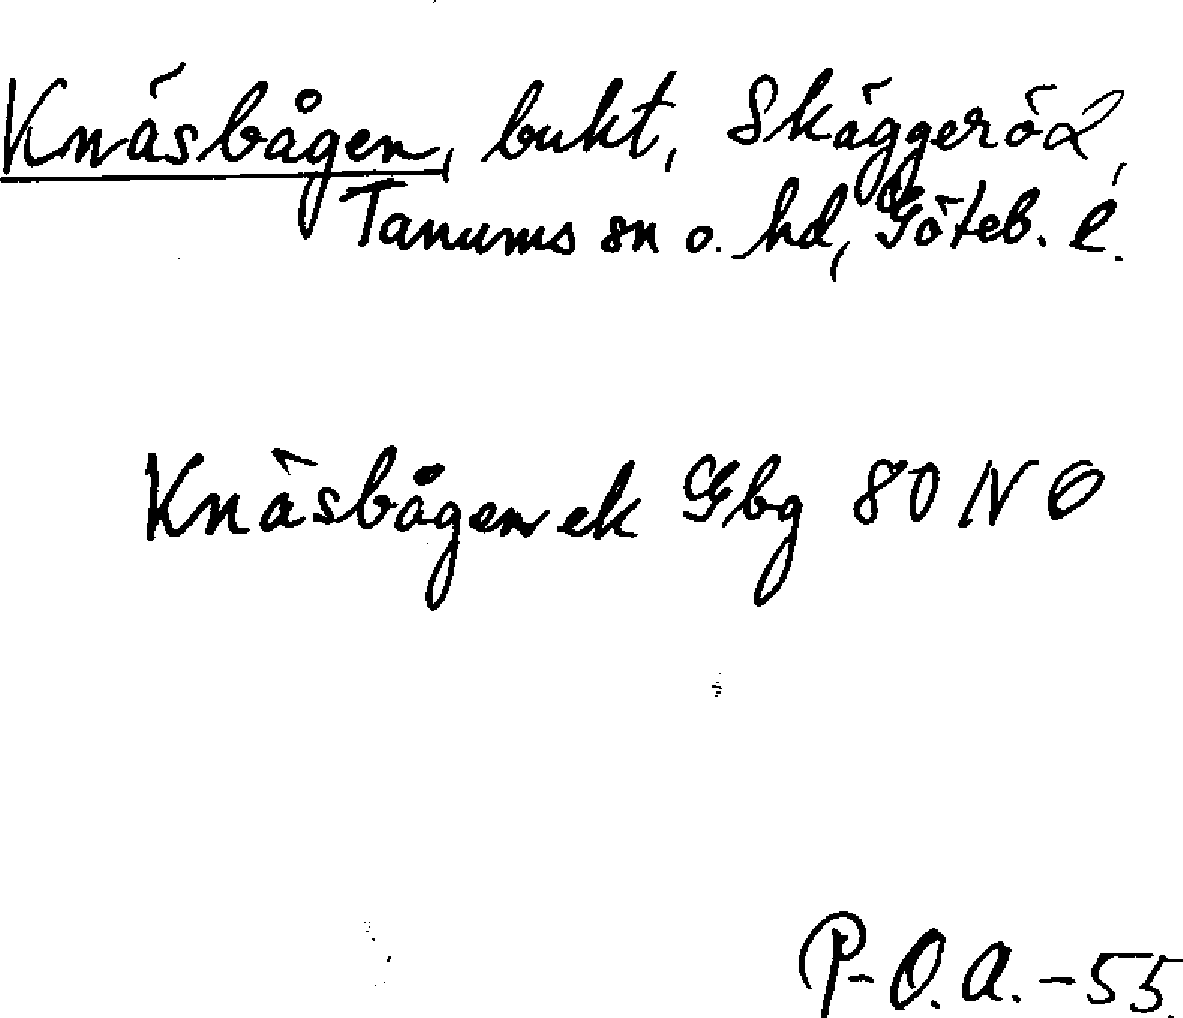 Knäsbågen, bukt, Skäggeröd,
Tanums sn o. hd, Göteb. l.
Knäsbågen ek Gbg 80 NO
P-O.A.-55.